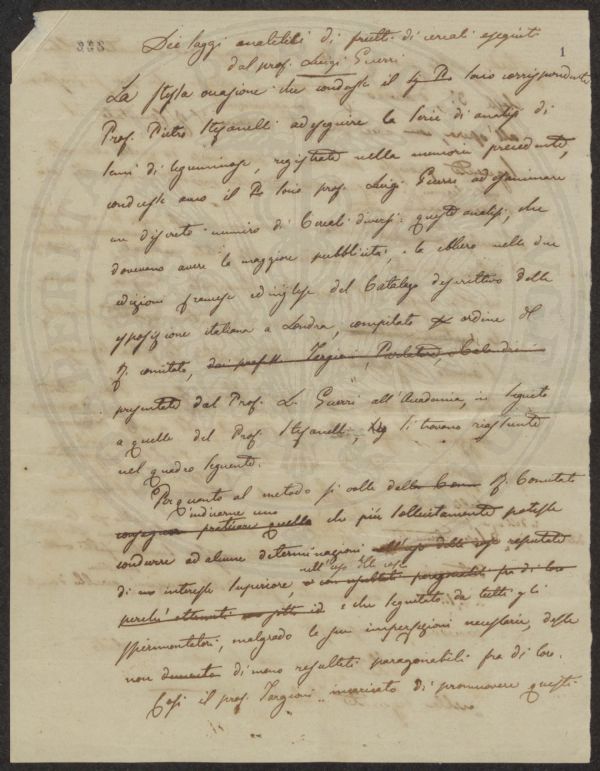 1
Dei saggi analitici di frutti di cereali eseguiti
dal prof. Luigi Guerri
La stessa occasione che condusse il Socio corrispondente
Prof. Pietro Stefanelli ad eseguire la serie di analisi di
semi di leguminose, registrate nella memoria precedente,
condusse anco il Socio prof. Luigi Guerri ad esaminare
un discreto numero di Cereali diversi: queste analisi, che
dovevano avere la maggiore pubblicità, la ebbero nelle due
edizioni francese ed inglese del Catalogo descrittivo della
esposizione italiana a Londra, compilato ordine del
R. comitato, Targioni, Parlatore, e Calandrini
presentate dal Prof. L. Guerri all'Accademia, in seguito
a quelle del Prof. Stefanelli, si trovano riassunte
nel quadro seguente.
Per quanto al metodo si volle dalla R. Comitato
indicarne uno
praticare quello che più sollecitamente potesse
condurre ad alcune determinazioni all'uso delle cose reputate
nell'uso delle cose
di un interesse superiore, paragonabili fra di loro
perché ottenuti e che seguitato da tutti gli
sperimentatori, malgrado le sue imperfezioni necessarie, desse
non di meno resultati paragonabili fra di loro.
Così il prof. Targioni incaricato di promuovere questi